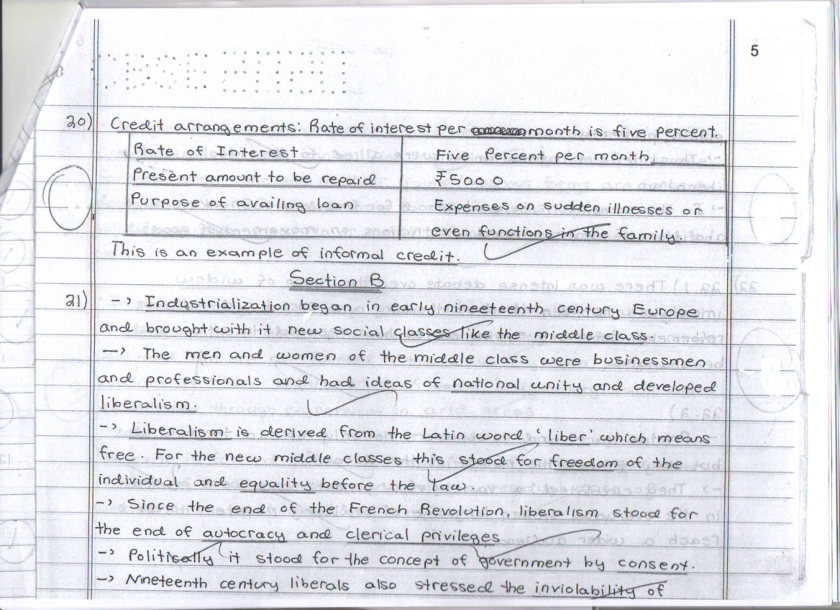 5
20) Credit arrangements: Rate of interest per month is five percent.
Rate of Interest Five Percent per month
Present amount to be repaid ₹5000
Purpose of availing loan Expenses on sudden illnesses or
even functions in the family.
This is an example of informal credit.
Section B
21) -> Industrialization began in early nineteenth century Europe
and brought with it new social classes like the middle class.
-> The men and women of the middle class were businessmen
and professionals and had ideas of national unity and developed
liberalism.
-> Liberalism is derived from the Latin word 'liber' which means
free. For the new middle classes this stood for freedom of the
individual and equality before the law.
-> Since the end of the French Revolution, liberalism stood for
the end of autocracy and clerical privileges
-> Politically it stood for the concept of government by consent.
-> Nineteenth century liberals also stressed the inviolability of